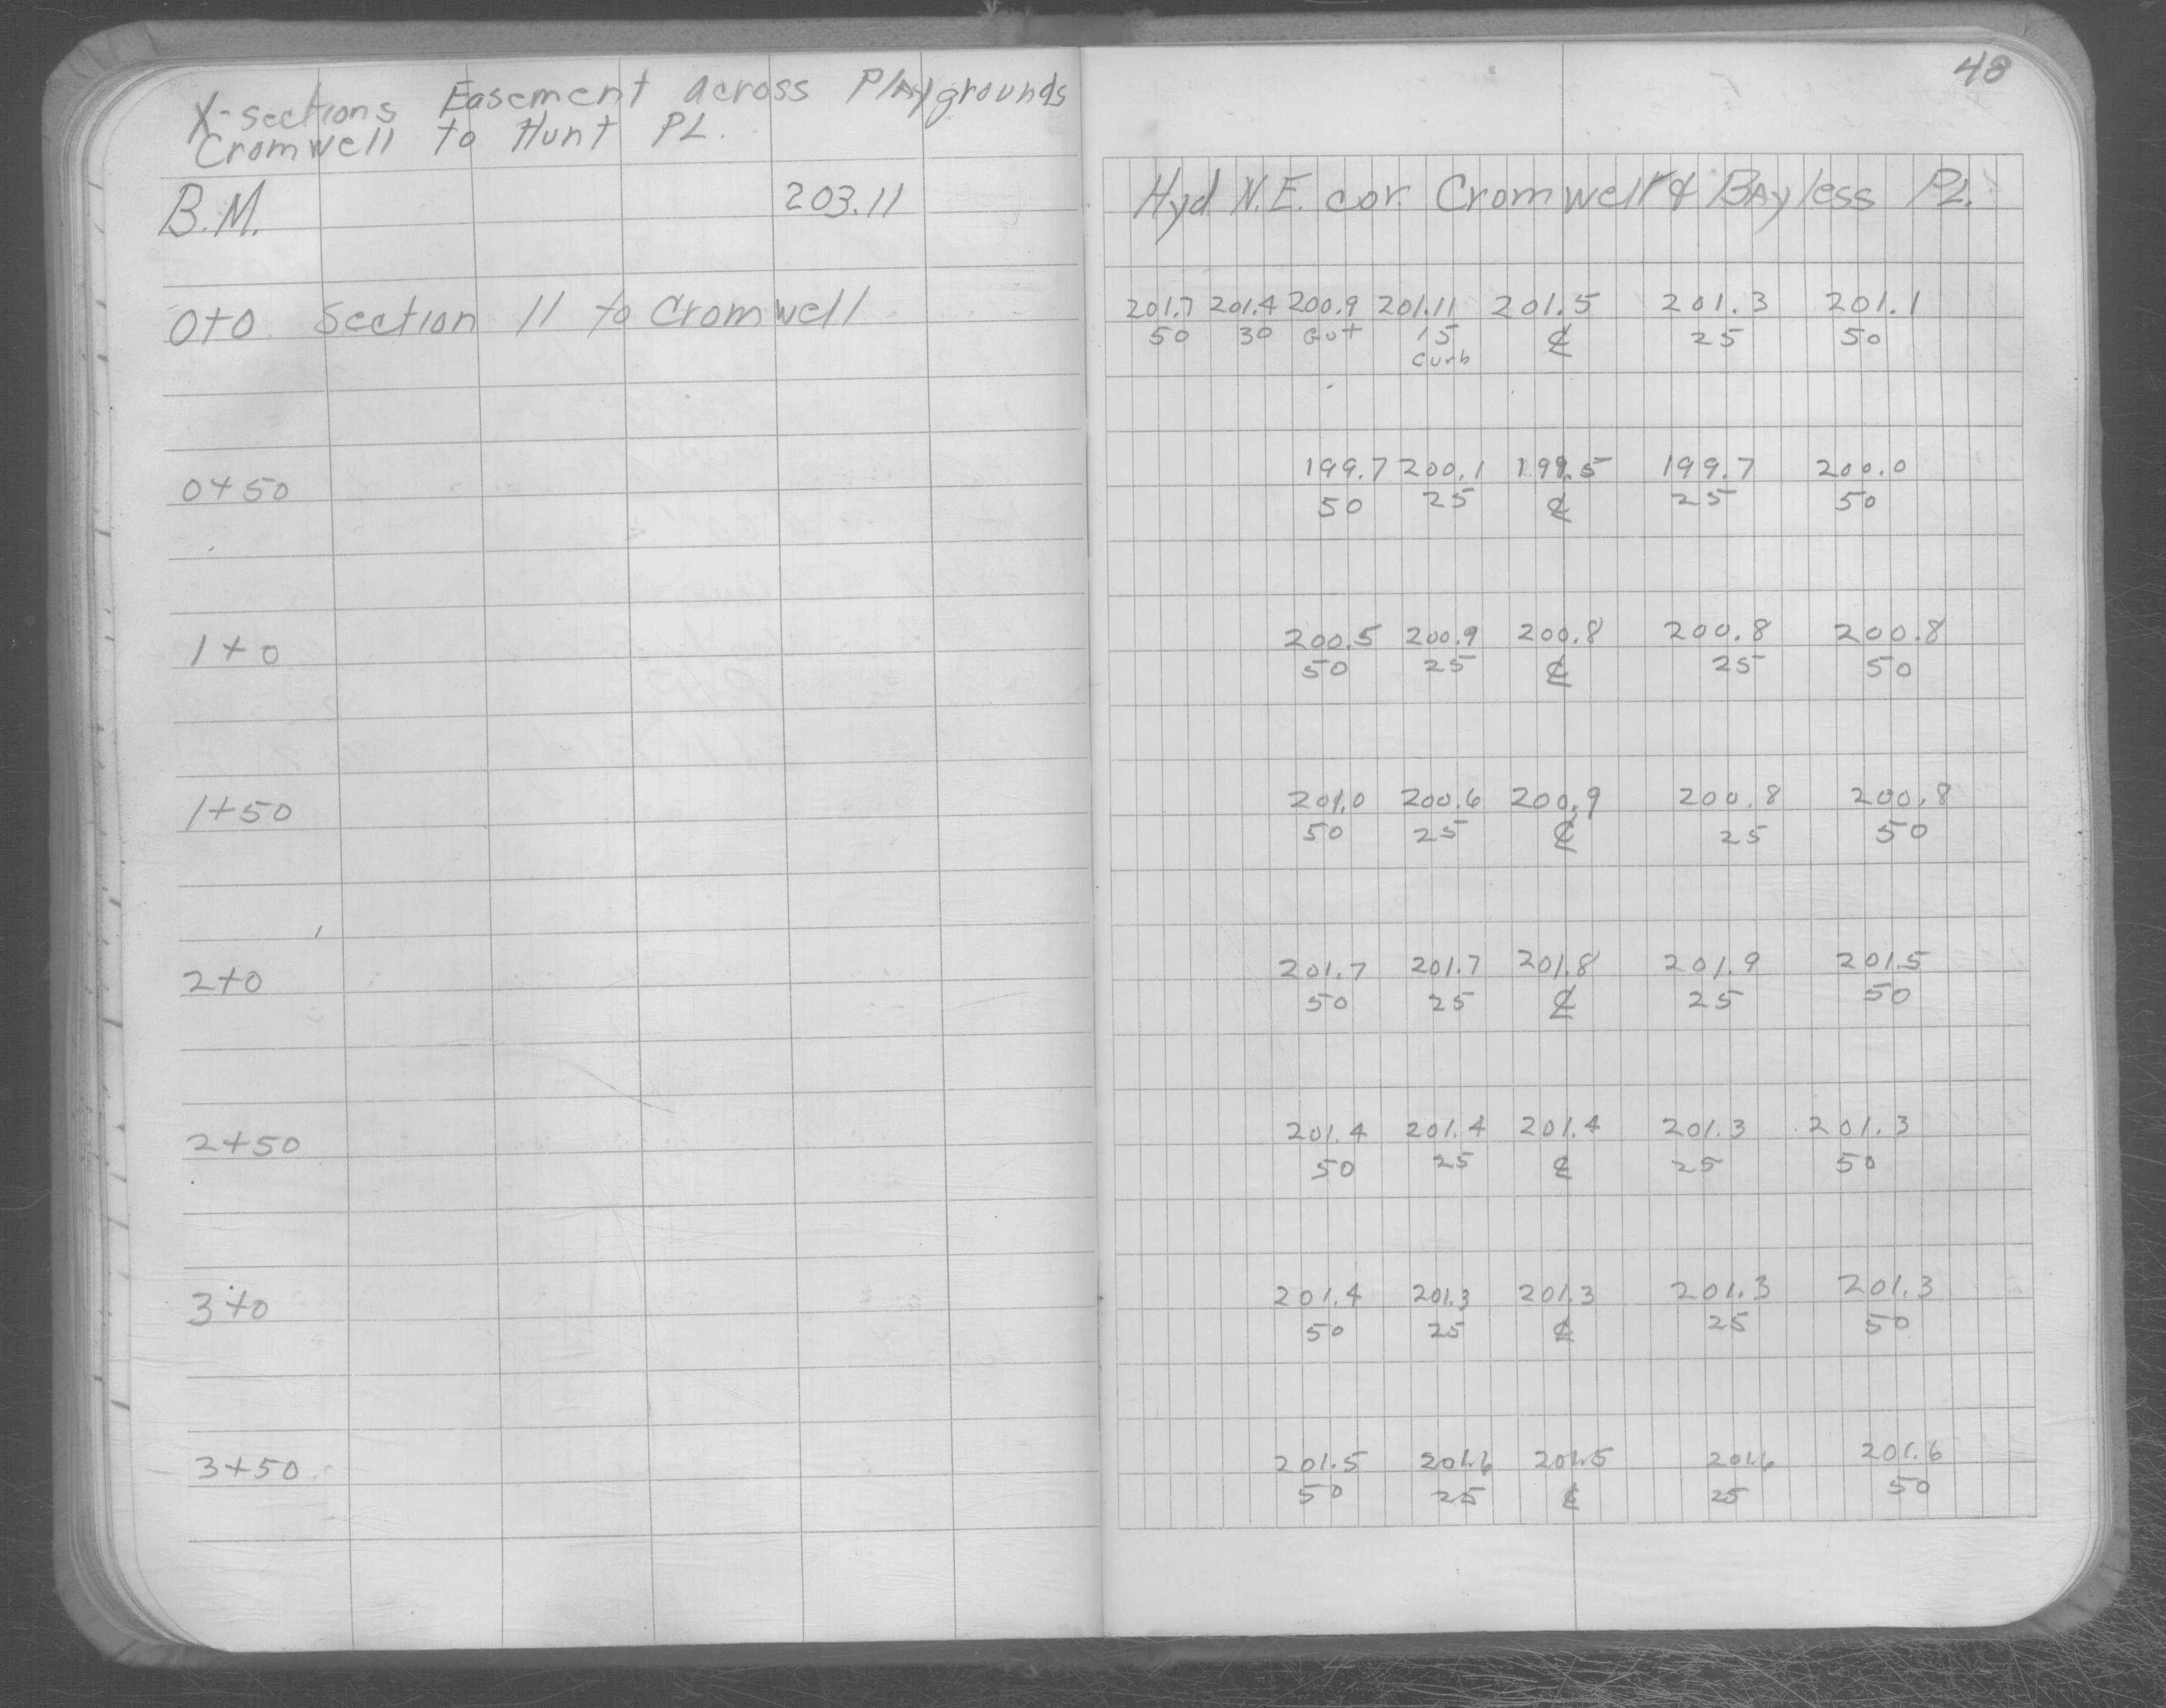 48
X-sections Easement across Playgrounds
Cromwell to Hunt PL.
B.M. 203.11 Hyd. N.E. cor. Cromwell & Bayless PL.
0+0 Section 11 to Cromwell 201.7 201.4 200.9 201.11 201.5 201.3 201.1
50 30 Gut 15 ℄ 25 50
Curb
0+50 199.7 200.1 199.5 199.7 200.0
50 25 ℄ 25 50
1+0 200.5 200.9 200.8 200.8 200.8
50 25 ℄ 25 50
1+50 201.0 200.6 200.9 200.8 200.8
50 25 ℄ 25 50
2+0 201.7 201.7 201.8 201.9 201.5
50 25 ℄ 25 50
2+50 201.4 201.4 201.4 201.3 201.3
50 25 ℄ 25 50
3+0 201.4 201.3 201.3 201.3 201.3
50 25 ℄ 25 50
3+50 201.5 201.6 201.5 201.6 201.6
50 25 ℄ 25 50